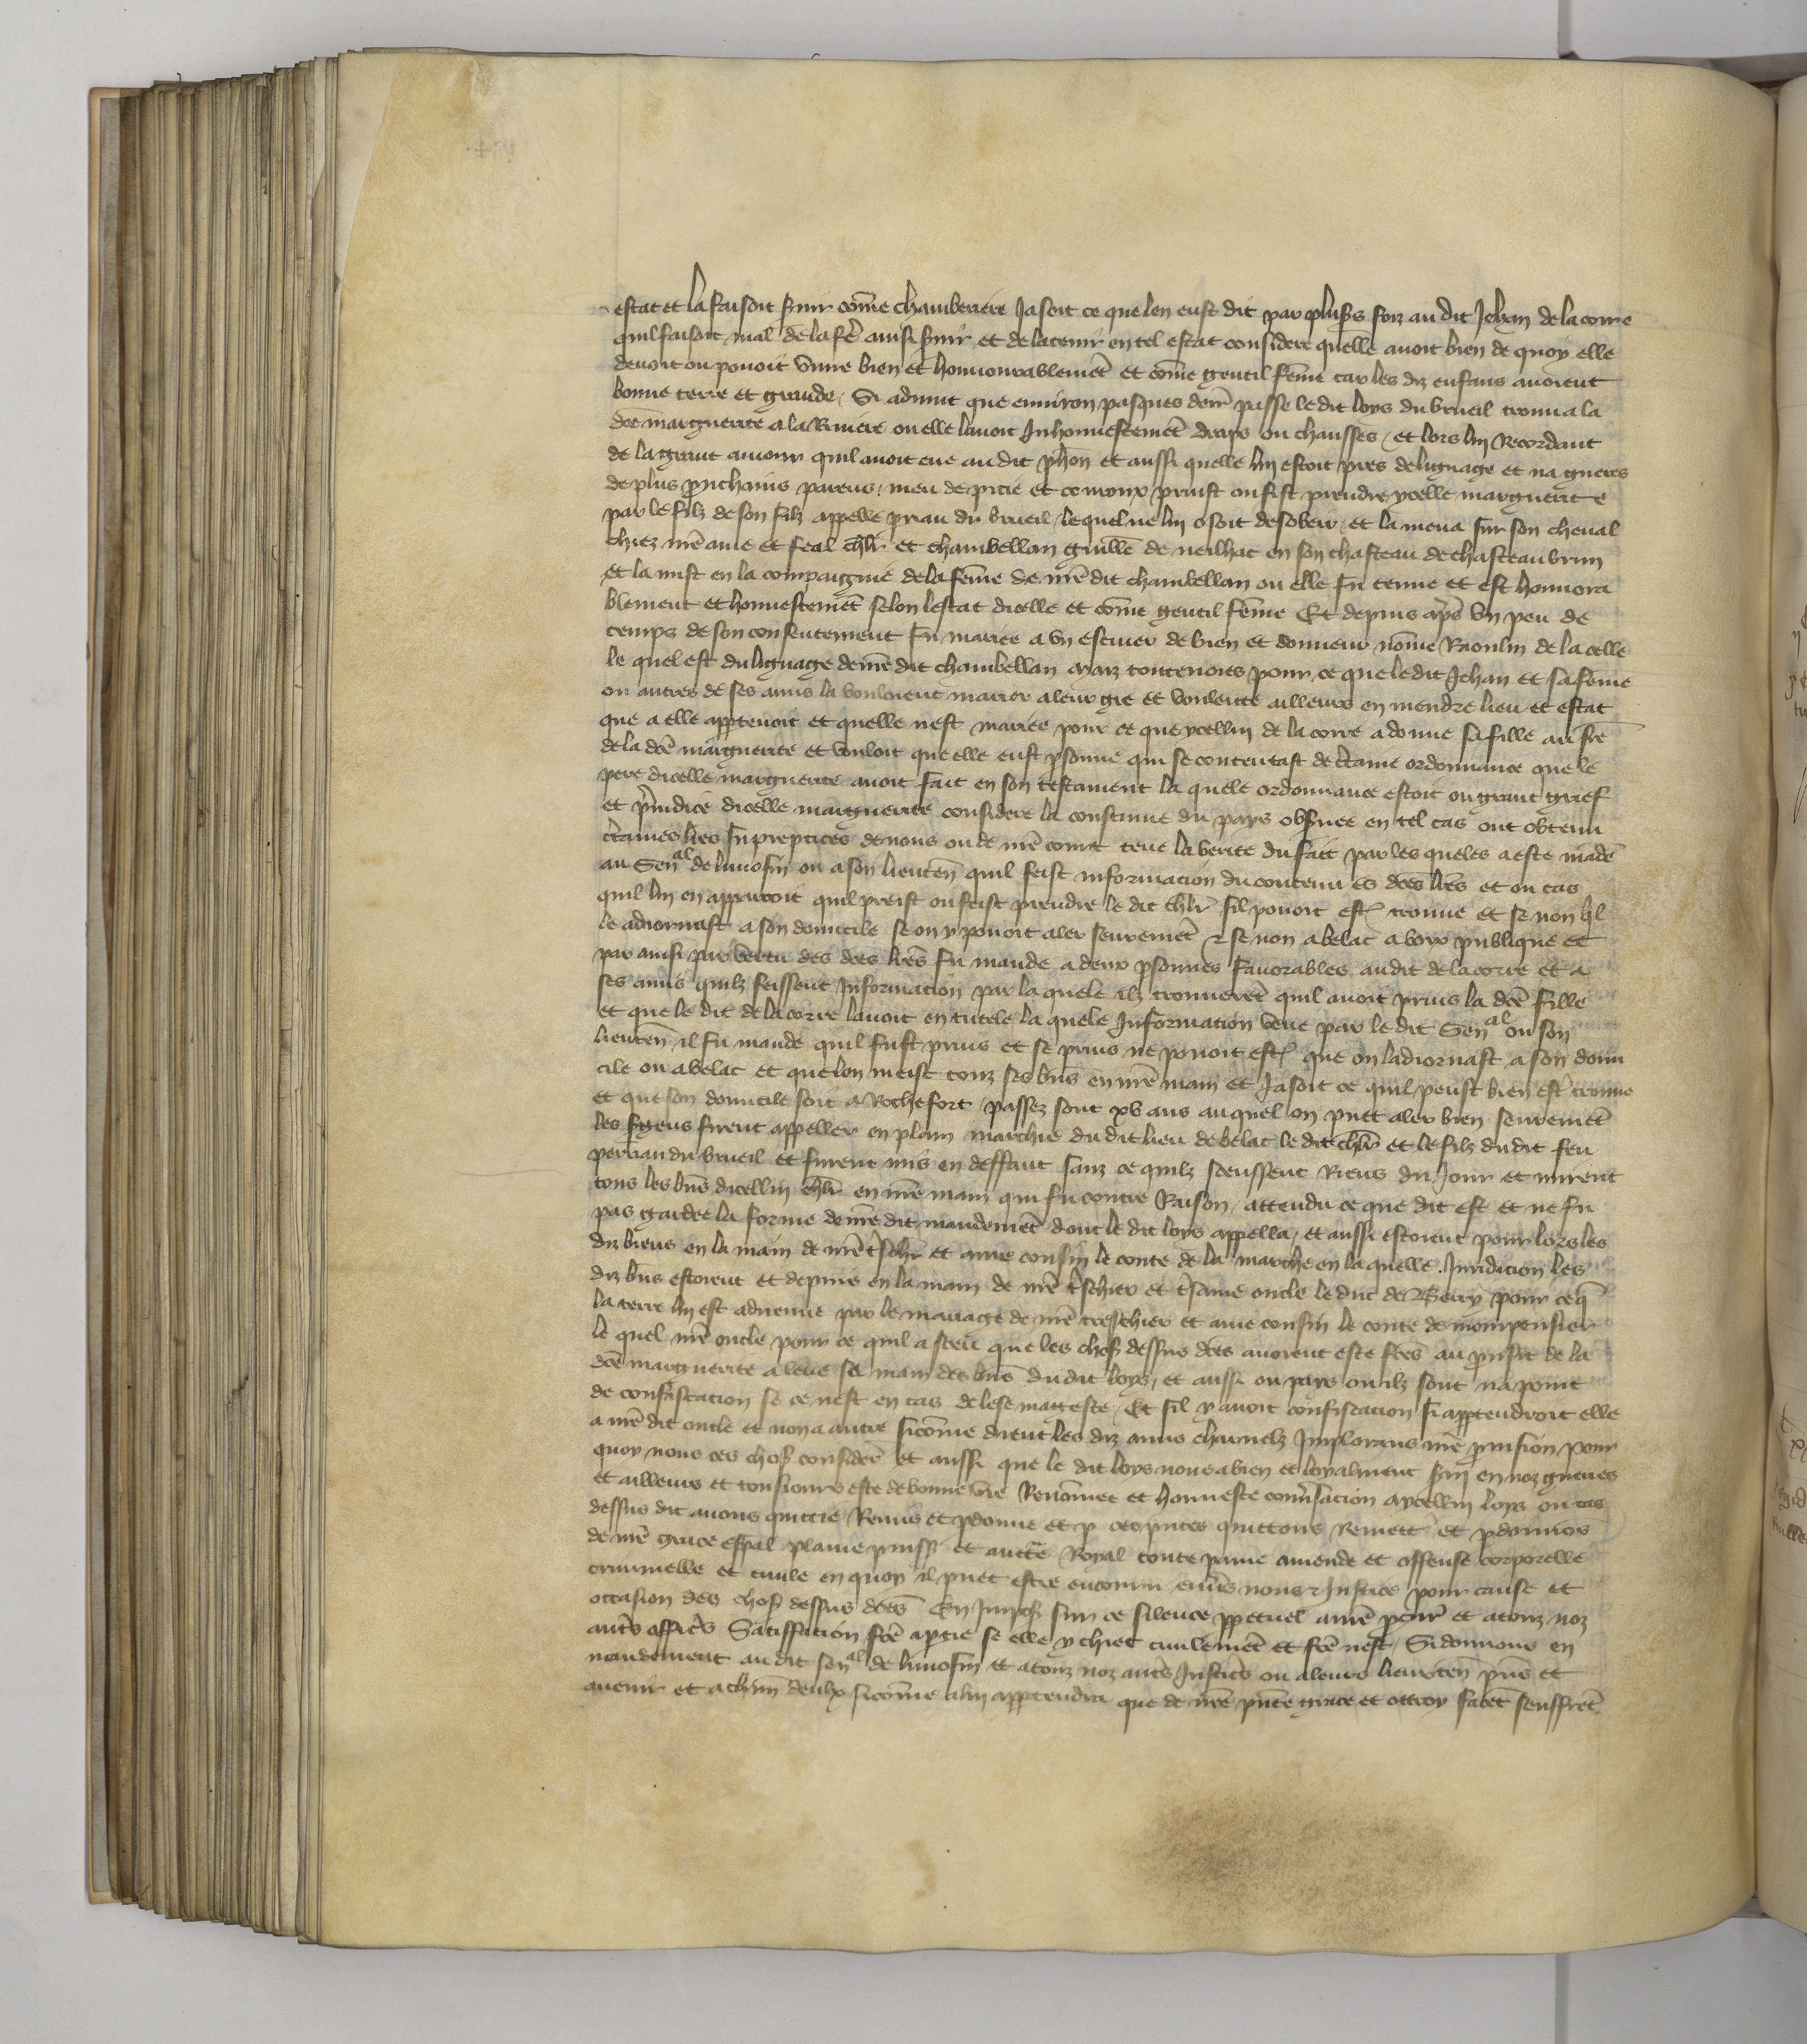 estat et la faisoit svir cōme chamberiere Jasoit ce que len eust dit par plusrs foiz au dit Jehan de la corre
quil faisoit mal de la fe ainsi svir et de la tenir en tel estat considere quelle avoit bien de quoy elle
devoit ou povoit vivre bien et honnourablemēt et cōme gentil fēme car les diz enfans avoient
bonne terre et grande / Si advint que environ pasques derr passe le dit loys du brueil trouva la
dcē marguerite a la Riviere ou elle lavoit Inhonnestemēt draps ou chausses / et lors luy Recordant
de la grant amour quil avoit eue au dit phōn et aussi quelle luy estoit pres de lignage et na gueres
de plus prochains parens / meu de pitie et couroux prinst ou fist prendre ycelle marguerite
par le filz de son filz appelle priau du brueil / lequel ne luy osoit desobeir / et la mena sur son cheval
chiez nrē ame et feal chlr et chambellan guillē de neilhac en son chasteau de chasteau brun
et la mist en la compaignie de la fēme de nrē dit chambellan ou elle fu tenue et est honnora
blement et honnestemēt selon lestat dicelle et cōme gentil fēme Et depuis apēs un peu de
temps de son consentement fu mariee a un escuier de bien et donneur nōme Raoulin de la celle
le quel est du lignage de nrē dit chambellan maiz toutevoies pour ce que le dit Jehan et sa fēme
ou autres de ses amis la vouloient marier a leur gre et voulente ailleurs en mendre lieu et estat
que a elle apptenoit et quelle nest mariee pour ce que ycellui de la corre a donne sa fille au fre
de la dcē marguerite et vouloit que elle eust psonne qui se contentast de ctaine ordonnance que le
pere dicelle marguerite avoit fait en son testament la quele ordonnance estoit ou grant grief
et piudice dicelle marguerite considere la coustume du pays observee en tel cas ont obtenu
ctaines lrēs Inpreptices de nous ou de nrē court teue la verite du fait par les queles a este mādē
au Senal de limosin ou a son lieutēn quil feist informacion du contenu es dcēs lrēs et ou cas
quil luy en apparroit quil preist ou feist prendre le dit chlr sil povoit estr trouve et se non quil
le adiornast a son domicile se on y povoit aler seuremēt & se non a belac a voix publique et
par ainsi par vertu des dcēs lrēs fu mande a deux psonnes favorables au dit de la corre et a
ses amis quilz feissent Informacion par la quele ilz trouverēt quil avoit prins la dcē fille
et que le dit de la corre lavoit en tutele la quele Informacion veue par le dit Senal ou son
lieutēn il fu mande quil fust prins et se prins ne povoit estr que on ladiornast a son domi
cile ou a belac et que lon meist touz ses bns en nrē main et Jasoit ce quil peust bien estr trouve
et que son domicile soit a Rochefort / passez sont xv ans au quel on puet aler bien seuremēt
les sgens firent appeller en plain marchie du dit lieu de belac le dit chlr et le filz du dit feu
perrian du brueil et furent mis en deffaut sanz ce quilz sceussent Riens du Jour et mirent
tous les bns dicellui chlr en nrē main qui fu contre Raison / attendu ce que dit est et ne fu
pas gardee la forme de nrē dit mandemēt dont le dit loys appella / et aussi estoient pour lors les
diz biens en la main de nrē tschr et ame cousin le conte de la marche en la quelle Juridicion les
diz bns estoient et depuis en la main de nrē tschier et tsame oncle le duc de Berry pour ce q
la terre luy est advenue par le mariage de nrē treschier et ame cousin le conte de monpensier
le quel nrē oncle pour ce quil a sceu que les chos dessus dcēs avoient este fcēs au prousit de la
dcē marguerite a leve sa main des bns du dit loys / et aussi ou pays ou ilz sont na point
de confiscation se ce nest en cas de lese mageste / Et sil y avoit confiscation si apptendroit elle
a nrē dit oncle et non a autre sicōme dient les diz amis charnelz Implorans nrē provision pour
quoy nous ces chos considers et aussi que le dit loys nous a bien et loyalment svi en noz guerres
et ailleurs et tousiours este de bonne vie Renōmee et honneste conversacion a ycellui loys ou cas
dessus dit avons quittie Remis et pdonne et p ces pntes quittons Remett et pdonnos
de nrē grace espāl plaine puiss et auctē Royal toute paine amende et offense corporelle
criminelle et civile en quoy il puet estre encouru envs nous & Justice pour cause et
occasion des chos dessus dcēs En Imposs sur ce silence ppetuel a nrē procur et a touz noz
auts officrs Satiffacion fcē a ptie se elle y chiet civilemēt et fcē nest / Si donnons en
mandement au dit senal de limosin et a touz noz auts Justics ou a leurs lieuxtēn pns et
avenir et a chun deulx sicōme a luy apptendra que de nrē pnte grace et ottroy facēt seuffrēt